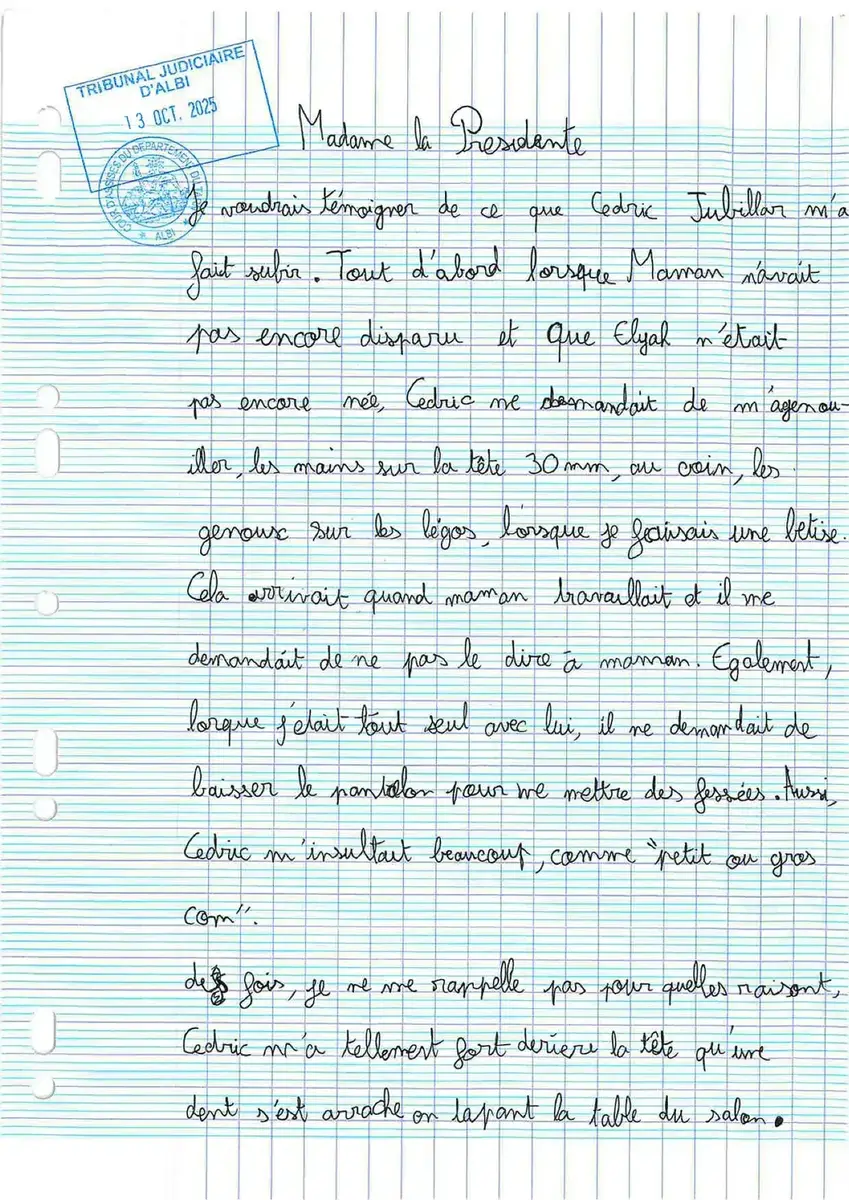 TRIBUNAL JUDICIAIRE
D'ALBI
13 OCT. 2025
COUR D'ASSISES DU DEPARTEMENT DU TARN
ALBI
Madame la Presidente
Je voudrais témoigner de ce que Cedric Jubillar m'a
fait subir. Tout d'abord lorsque Maman n'avait
pas encore disparu et que Elyah n'était
pas encore née, Cedric me demandait de m'agenou-
iller, les mains sur la tête 30 mm, au coin, les
genoux sur les légos, lorsque je faisais une betise.
Cela arrivait quand maman travaillait et il me
demandait de ne pas le dire à maman. Egalement,
lorque j'était tout seul avec lui, il me demandait de
baisser le pantalon pour me mettre des fessées. Aussi,
Cedric m'insultait beaucoup, comme "petit ou gros
com".
des fois, je ne me rappelle pas pour quelles raisont,
Cedric m'a tellement fort derière la tête qu'une
dent s'est arrache on tapant la table du salon.